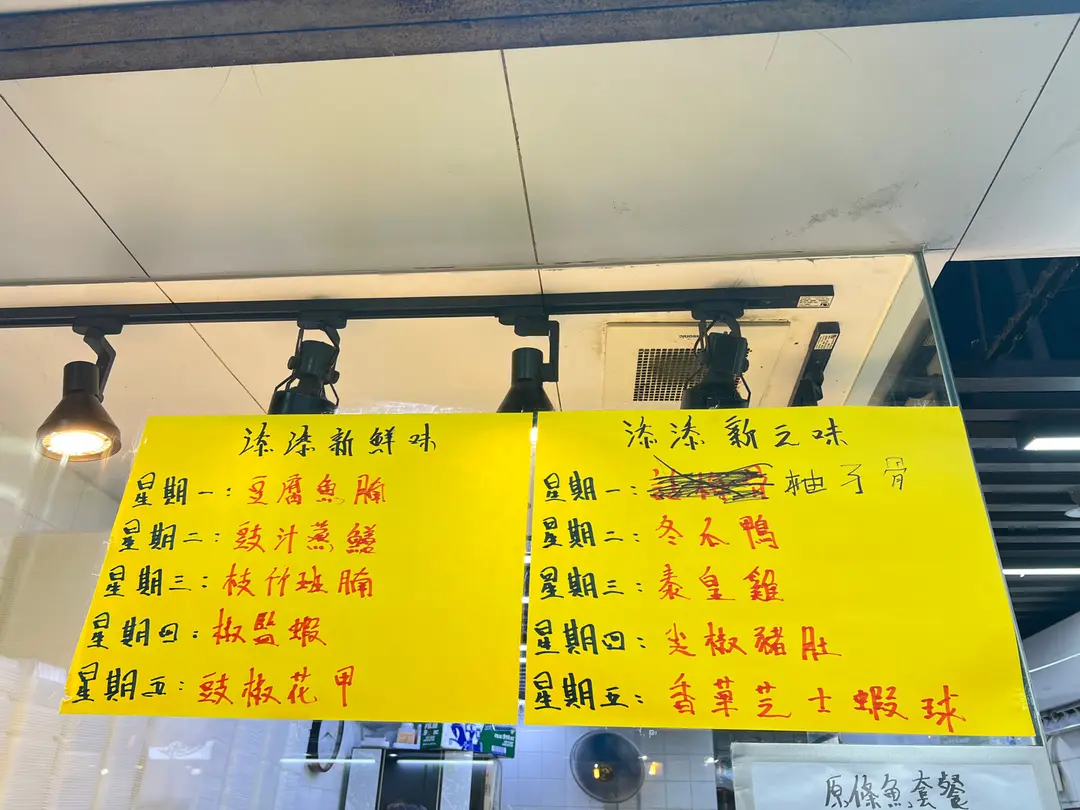 添添新鮮味
星期一：豆腐魚腩
星期二：豉汁蒸鱔
星期三：枝竹班腩
星期四：椒監蝦
星期五：豉椒花甲
添添新之味
星期一：柚子骨
星期二：冬瓜鴨
星期三：泰皇雞
星期四：尖椒豬肚
星期五：香草芝士蝦球
原條魚套餐